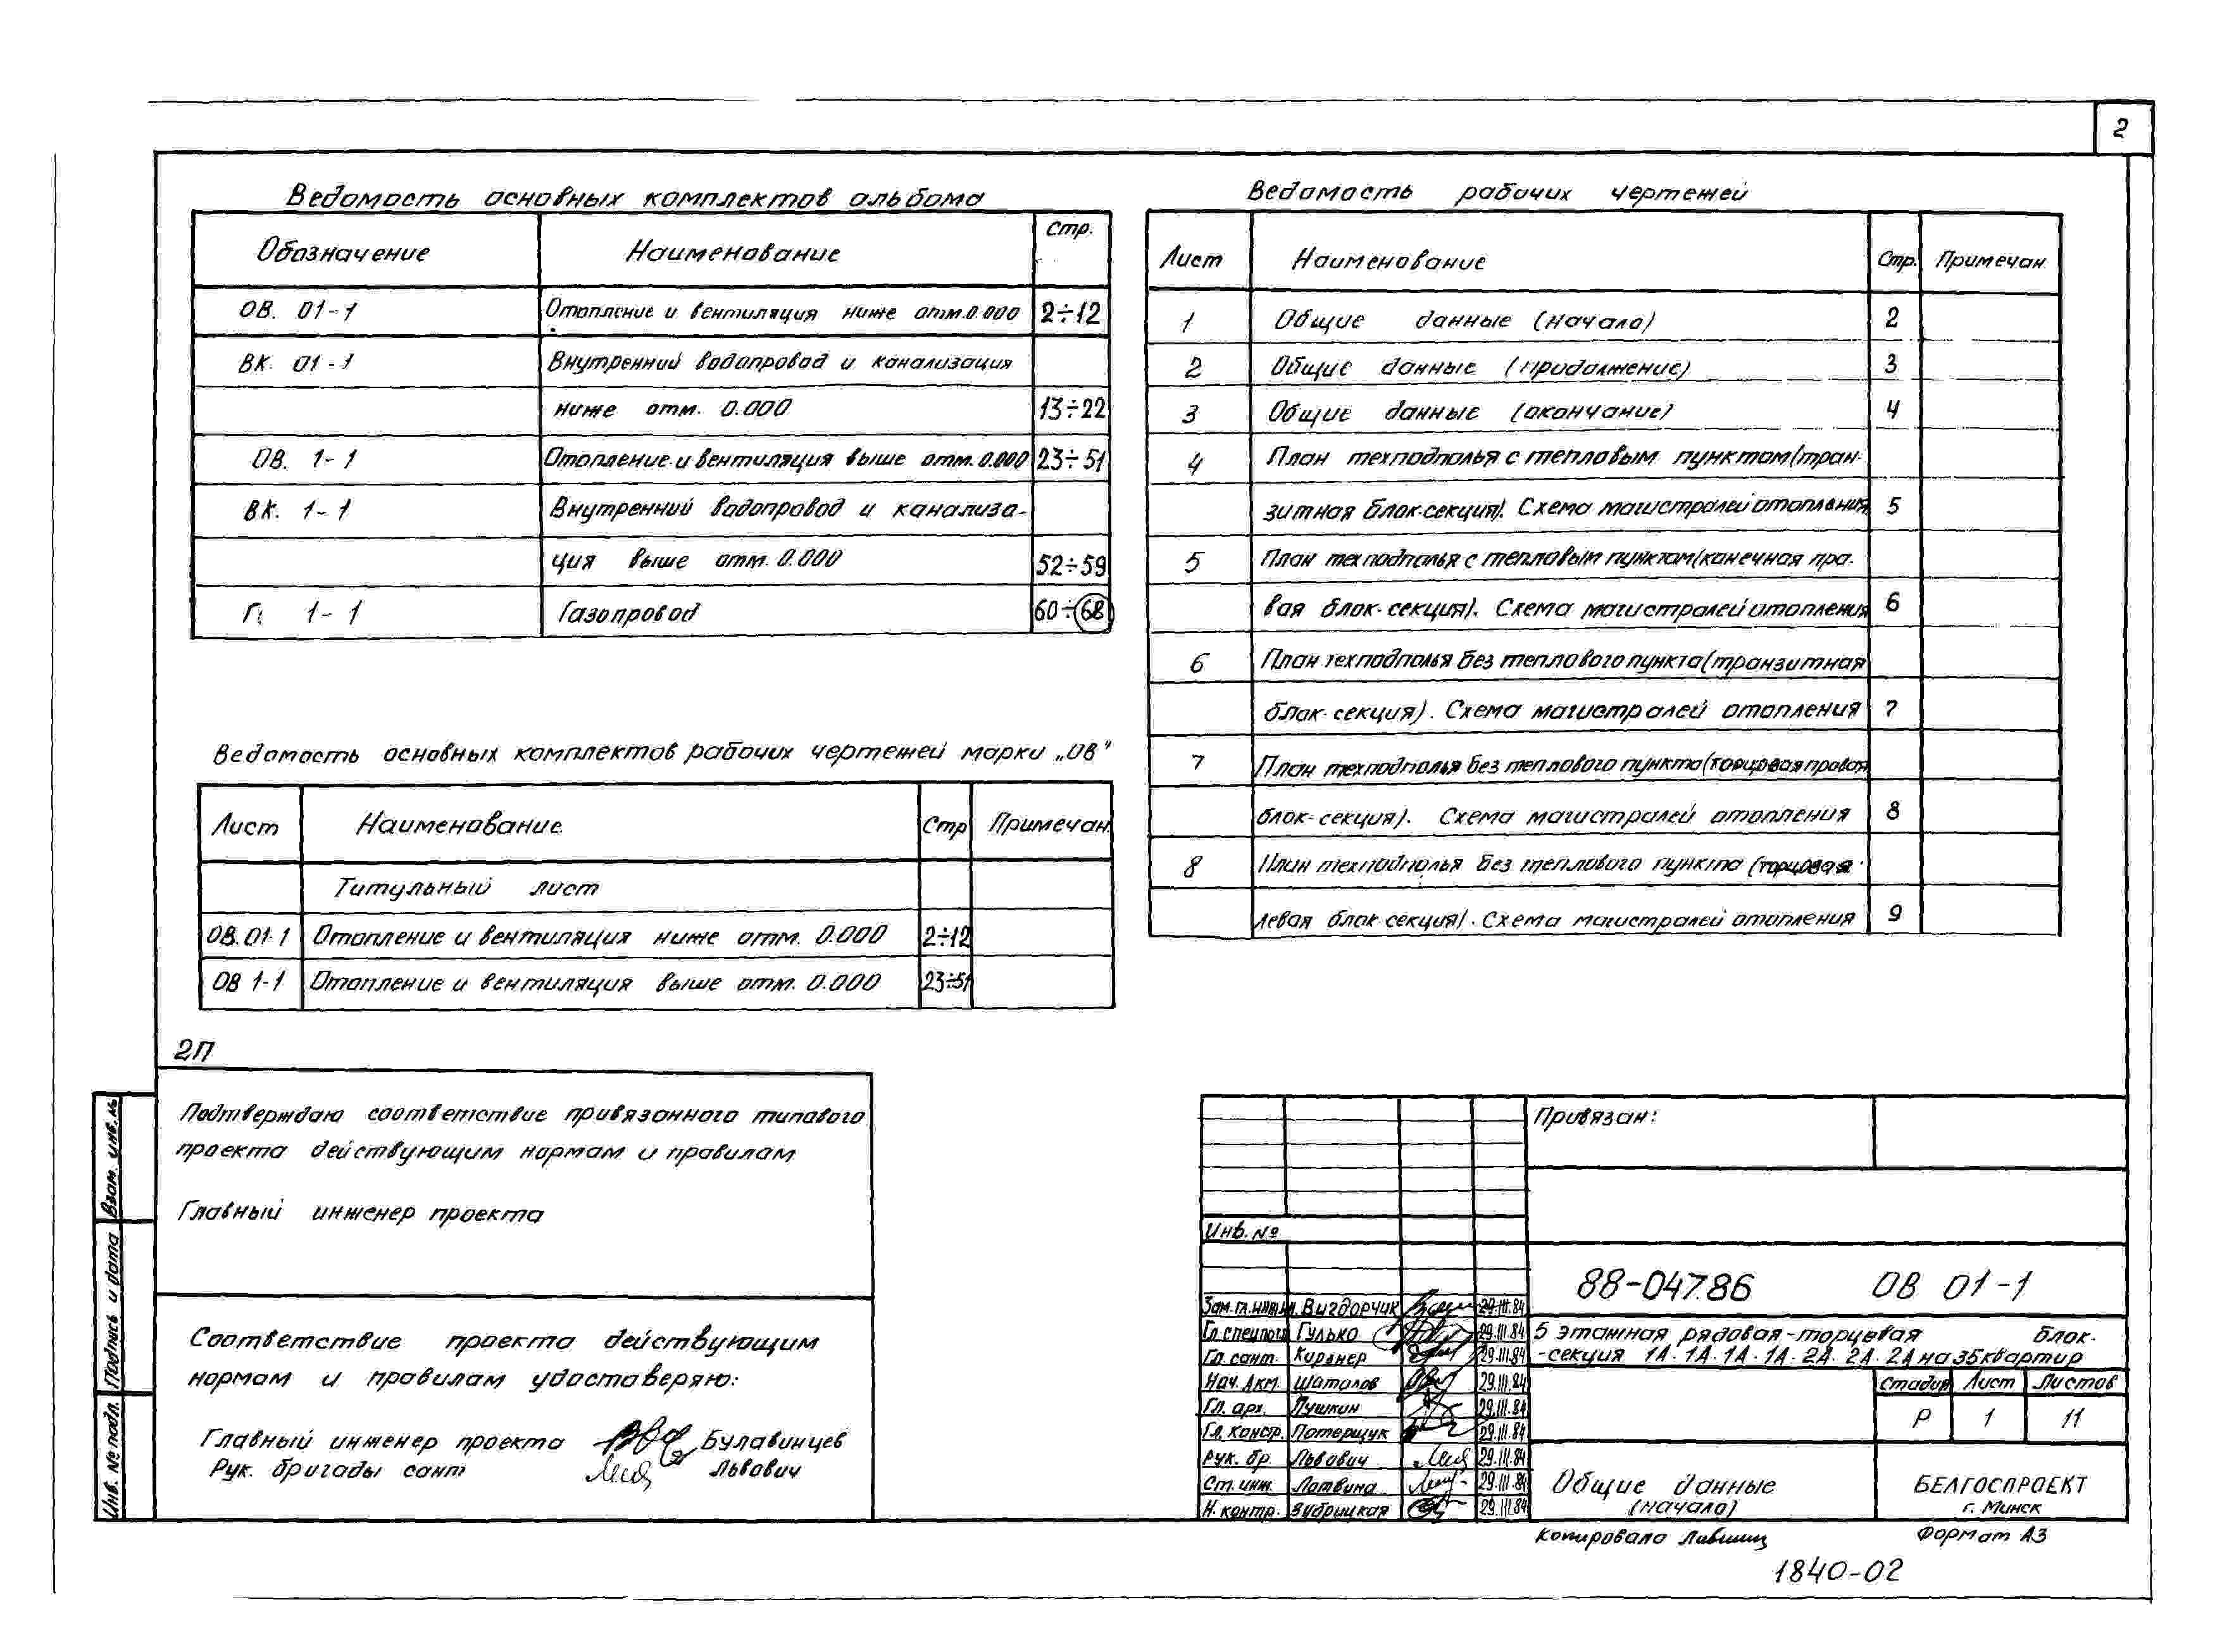 2
Ведомость основных комплектов альбома
Обозначение Наименование Стр.
ОВ. 01-1 Отопление и вентиляция ниже отм.0.000 2÷12
ВК. 01-1 Внутренний водопровод и канализация
ниже отм. 0.000 13÷22
ОВ. 1-1 Отопление и вентиляция выше отм. 0.000 23÷51
ВК. 1-1 Внутренний водопровод и канализа-
ция выше отм. 0.000 52÷59
Г. 1-1 Газопровод 60÷68
Ведомость основных комплектов рабочих чертежей марки „ОВ"
Лист Наименование Стр Примечан.
Титульный лист
ОВ.01-1 Отопление и вентиляция ниже отм. 0.000 2÷12
ОВ 1-1 Отопление и вентиляция выше отм. 0.000 23÷51
Ведомость рабочих чертежей
Лист Наименование Стр. Примечан.
1 Общие данные (начало) 2
2 Общие данные (продолжение) 3
3 Общие данные (окончание) 4
4 План техподполья с тепловым пунктом (тран-
зитная блок-секция). Схема магистралей отопления 5
5 План техподполья с тепловым пунктом (конечная пра-
вая блок-секция). Схема магистралей отопления 6
6 План техподполья без теплового пункта (транзитная
блок-секция). Схема магистралей отопления 7
7 План техподполья без теплового пункта (торцовая правая
блок-секция). Схема магистралей отопления 8
8 План техподполья без теплового пункта (торцовая
левая блок-секция). Схема магистралей отопления 9
2П
Подтверждаю соответствие привязанного типового
проекта действующим нормам и правилам
Главный инженер проекта
Соответствие проекта действующим
нормам и правилам удоставеряю:
Главный инженер проекта Булавинцев
Рук. бригады сант Львович
Взам. инв. №
Подпись и дата
Инв. № подл.
Привязан:
Инв. №
88-047.86 ОВ 01-1
Зам. гл. инж. Вигдорчик 29.III.84
Гл. спец. Гулько 29.III.84
Гл. сант. Кирзнер 29.III.84
Нач. АКМ. Шаталов 29.III.84
Гл. арх. Пушкин 29.III.84
Гл. констр. Потерщук 29.III.84
Рук. бр. Львович 29.III.84
Ст. инж. Латвина 29.III.84
Н. контр. Зубрицкая 29.III.84
5 этажная рядовая-торцевая блок-
-секция 1А. 1А. 1А. 1А. 2А. 2А. 2А на 35 квартир
Стадия Лист Листов
Р 1 11
Общие данные
(начало)
БЕЛГОСПРОЕКТ
г. Минск
Копировала Лившиц Формат А3
1840-02